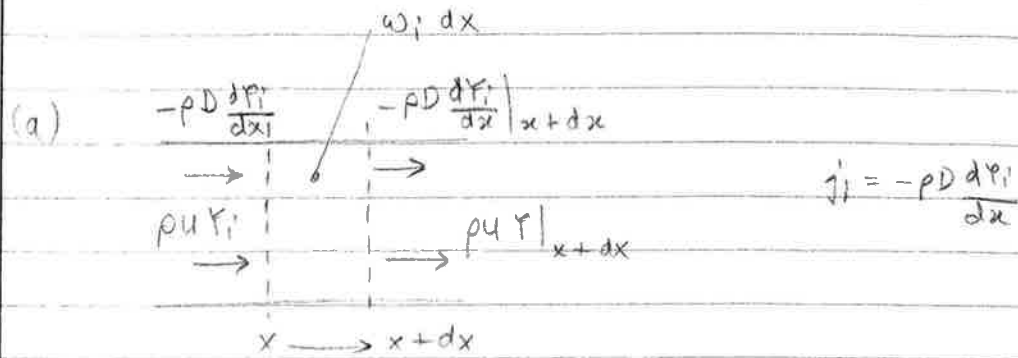 ωi dx
(a) -ρD dYi/dx | -ρD dYi/dx |x+dx
ji = -ρD dYi/dx
ρuYi ρuY|x+dx
x → x+dx